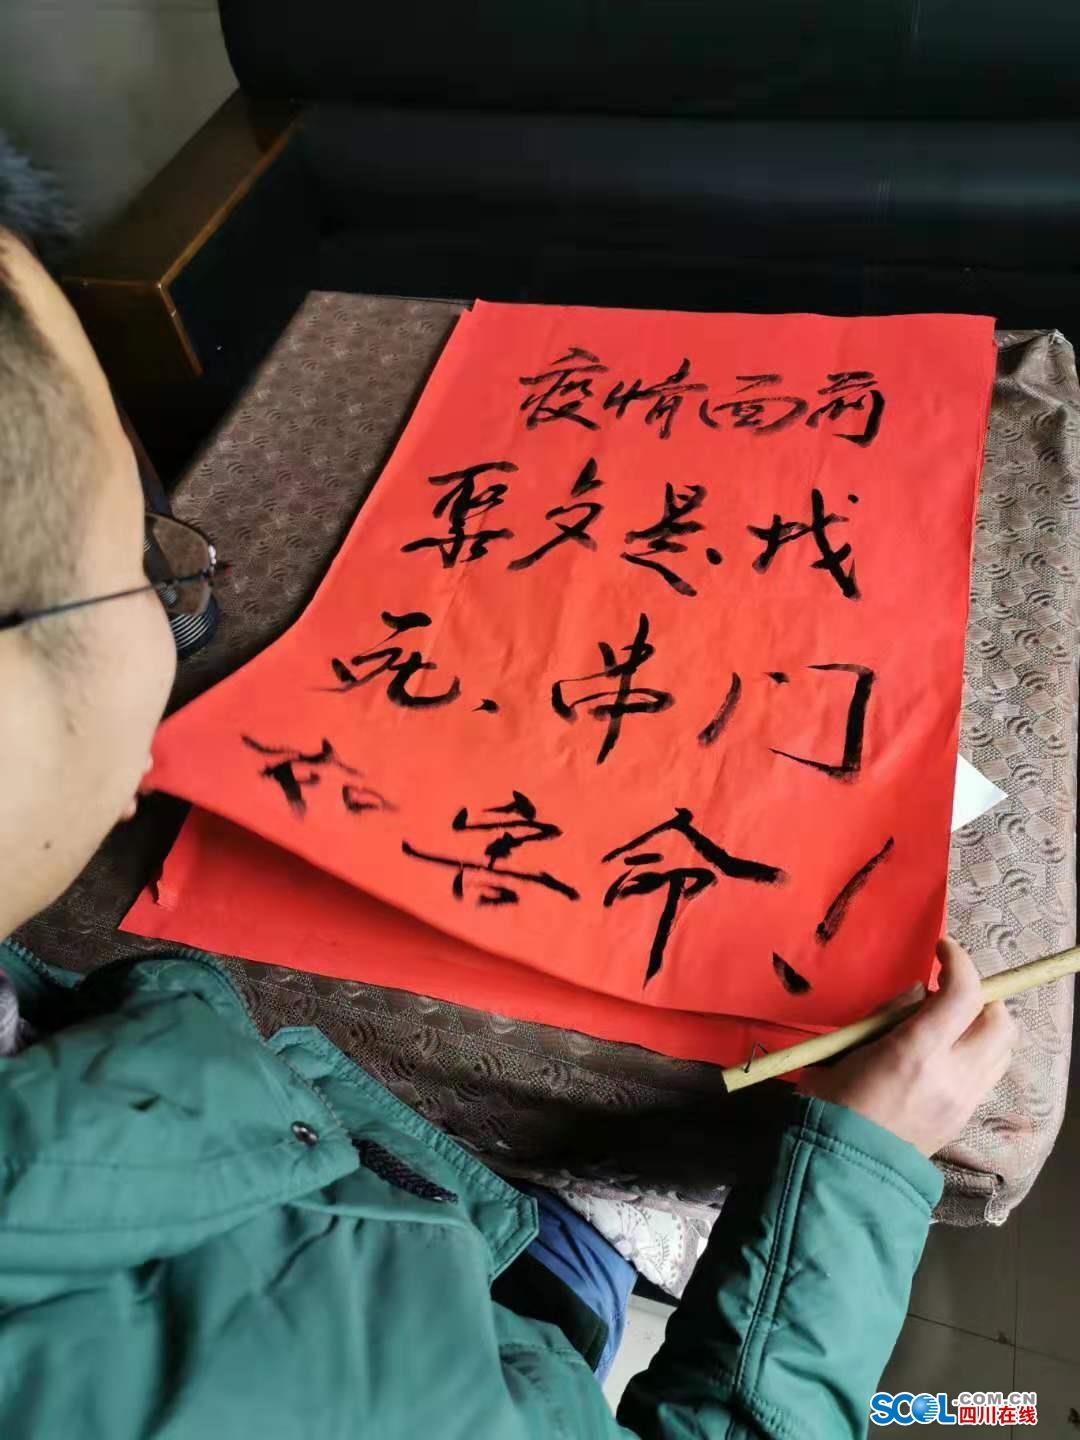 疫情面前
聚多是找
死、串门
如害命！
SCOL.COM.CN
四川在线